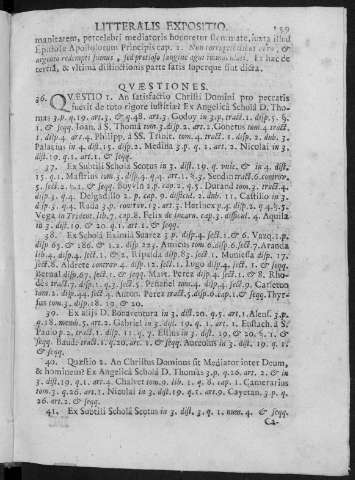 LITTERALIS EXPOSITIO. 159
manitatem, percelebri mediatoris honoretur stemmate, iuxta illud
Epistolæ Apostolorum Principis cap. 1. Non corruptibilibus auro, &
argento redempti sumus, sed pretioso sanguine agni immaculati. Ex hac de
tertia, & ultima distinctionis parte satis superque sint dicta.
QUÆSTIONES.
36. QUÆSTIO 1. An satisfactio Christi Domini pro peccatis
fuerit de toto rigore iustitiæ? Ex Angelica Scholâ D. Tho
mas 3. p. q. 19. art. 3. & q. 48. art. 3. Godoy in 3. p. tract. 1. disp. 5. §.
1. & seqq. Ioan. à S. Thoma tom. 3. disp. 2. art. 2. Gonetus tom. 4. tract.
1. disp. 4. art. 4. Philipp. à SS. Trinit. tom. 4. tract. 1. disp. 2. dub. 3.
Palatius in 4. dist. 15. disp. 2. Medina 3. p. q. 1. art. 2. Nicolai in 3.
dist. 19. q. 1. art. 1. & seqq.
37. Ex Subtili Schola Scotus in 3. dist. 19. q. unic. & in 4. dist.
15. q. 1. Mastrius tom. 3. disp. 4. q. 4. art. 1. & 3. Sendin tract. 6. controv.
5. sect. 2. §. 1. & seqq. Boyvin 2. p. cap. 2. q. 5. Durand tom. 3. tract. 4.
disp. 3. q. 4. Delgadillo 2. p. cap. 9. distinct. 2. dub. 11. Castillo in 3.
disp. 3. q. 4. Rada 3. p. controv. 13. art. 3. Herincx 3. p. disp. 2. q. 4. §. 5.
Vega in Trident. lib. 7. cap. 8. Felix de incarn. cap. 3. difficul. 4. Aquila
in 3. dist. 19. & 20. q. 1. art. 1. & seqq.
38. Ex Schola Eximia Suarez 3. p. disp. 4. sect. 1. & 6. Vazq. 1. p.
disp. 65. & 186. & 1. 2. disp. 223. Amicus tom. 6. disp. 6. sect. 7. Aranda
lib. 4. disp. 4. sect. 1. & 2. Ripalda disp. 83. sect. 1. Muniessa disp. 17.
sect. 8. Aldrete contrav. 4. disp. 12. sect. 1. Lugo disp. 4. sect. 1. & seqq.
Bernal disp. 67. sect. 1. & seqq. Maur. Perez disp. 4. sect. 1. & 8. Rho
des tract. 7. disp. 1. q. 3. sect. 5. Peñafiel tom. 4. disp. 4. sect. 9. Carleton
tom. 2. disp. 44. sect. 4. Anton. Perez tract. 5. disp. 6. cap. 1. & seqq. Thyr
sus tom. 3. disp. 18. 19. & 20.
39. Ex alijs D. Bonaventura in 3. dist. 20. q. 5. art. 1. Alens. 3. p.
q. 18. memb. 5. art. 2. Gabriel in 3. dist. 19. q. 1. art. 1. Eustach. à S.
Paulo p. 2. tract. 1. disp. 11. q. 7. Estius in 3. dist. 20. & 20. §. 1. &
seqq. Baude tract. 1. q. 20. art. 1. & seqq. Aureolus in 3. dist. 19. q. 1.
& seqq.
40. Quæstio 2. An Christus Dominus sit Mediator inter Deum,
& homines? Ex Angelica Scholâ D. Thomas 3. p. q. 26. art. 2. & in
3. dist. 19. q. 1. art. 4. Chalvet tom. 9. lib. 1. q. 8. cap. 1. Camerarius
tom. 3. q. 26. art. 1. Nicolai in 3. dist. 19. q. 1. art. 9. Cayetan. 3. p. q.
26. art. 2. & seqq.
41. Ex Subtili Scholâ Scotus in 3. dist. 3. q. 1. num. 4. & seqq.
Ca-